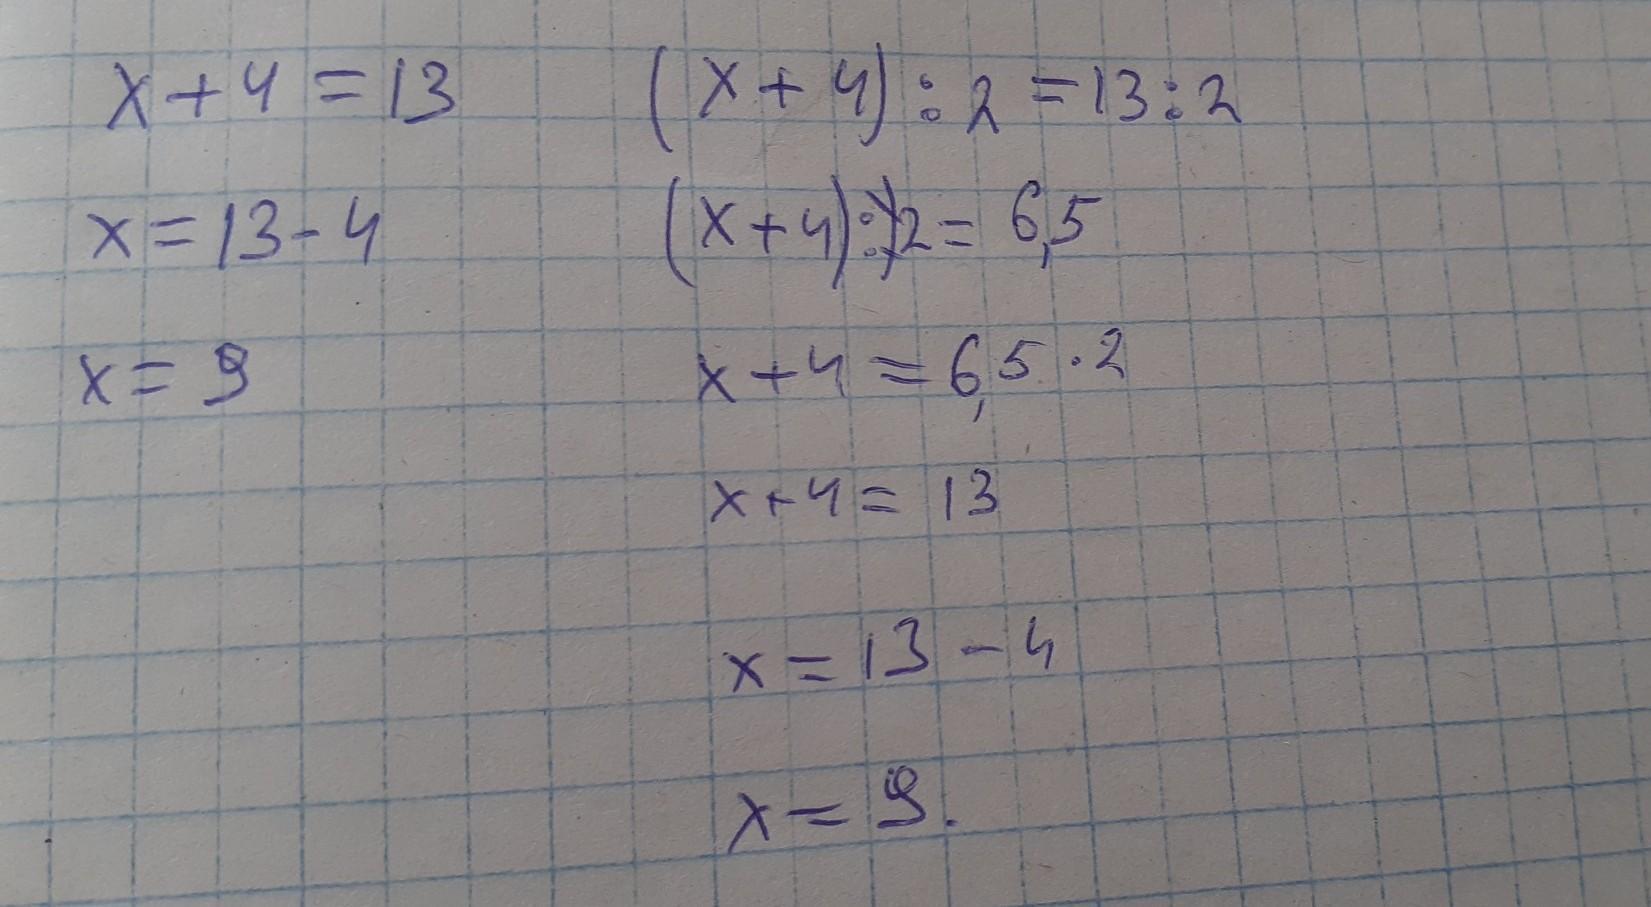 x + 4 = 13
x = 13 - 4
x = 9
(x + 4) : 2 = 13 : 2
(x + 4) : 2 = 6,5
x + 4 = 6,5 · 2
x + 4 = 13
x = 13 - 4
x = 9.